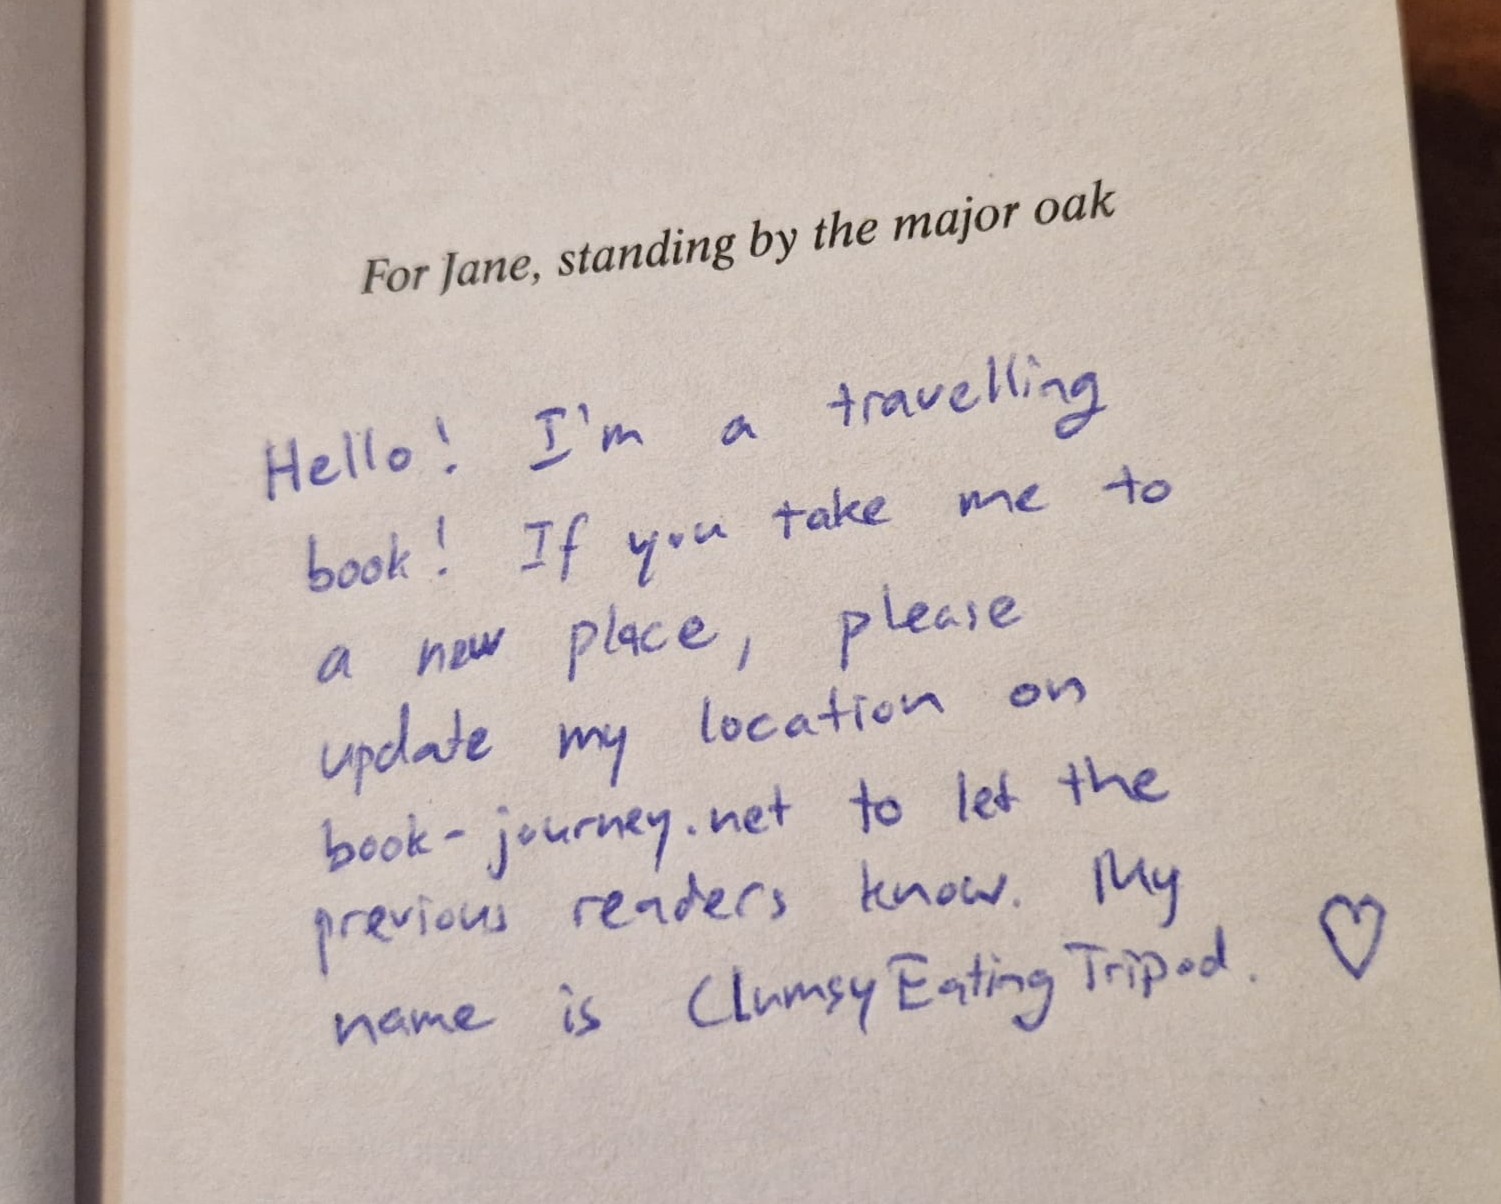 For Jane, standing by the major oak
Hello! I'm a travelling
book! If you take me to
a new place, please
update my location on
book-journey.net to let the
previous readers know. My
name is ClumsyEatingTripod. ♡